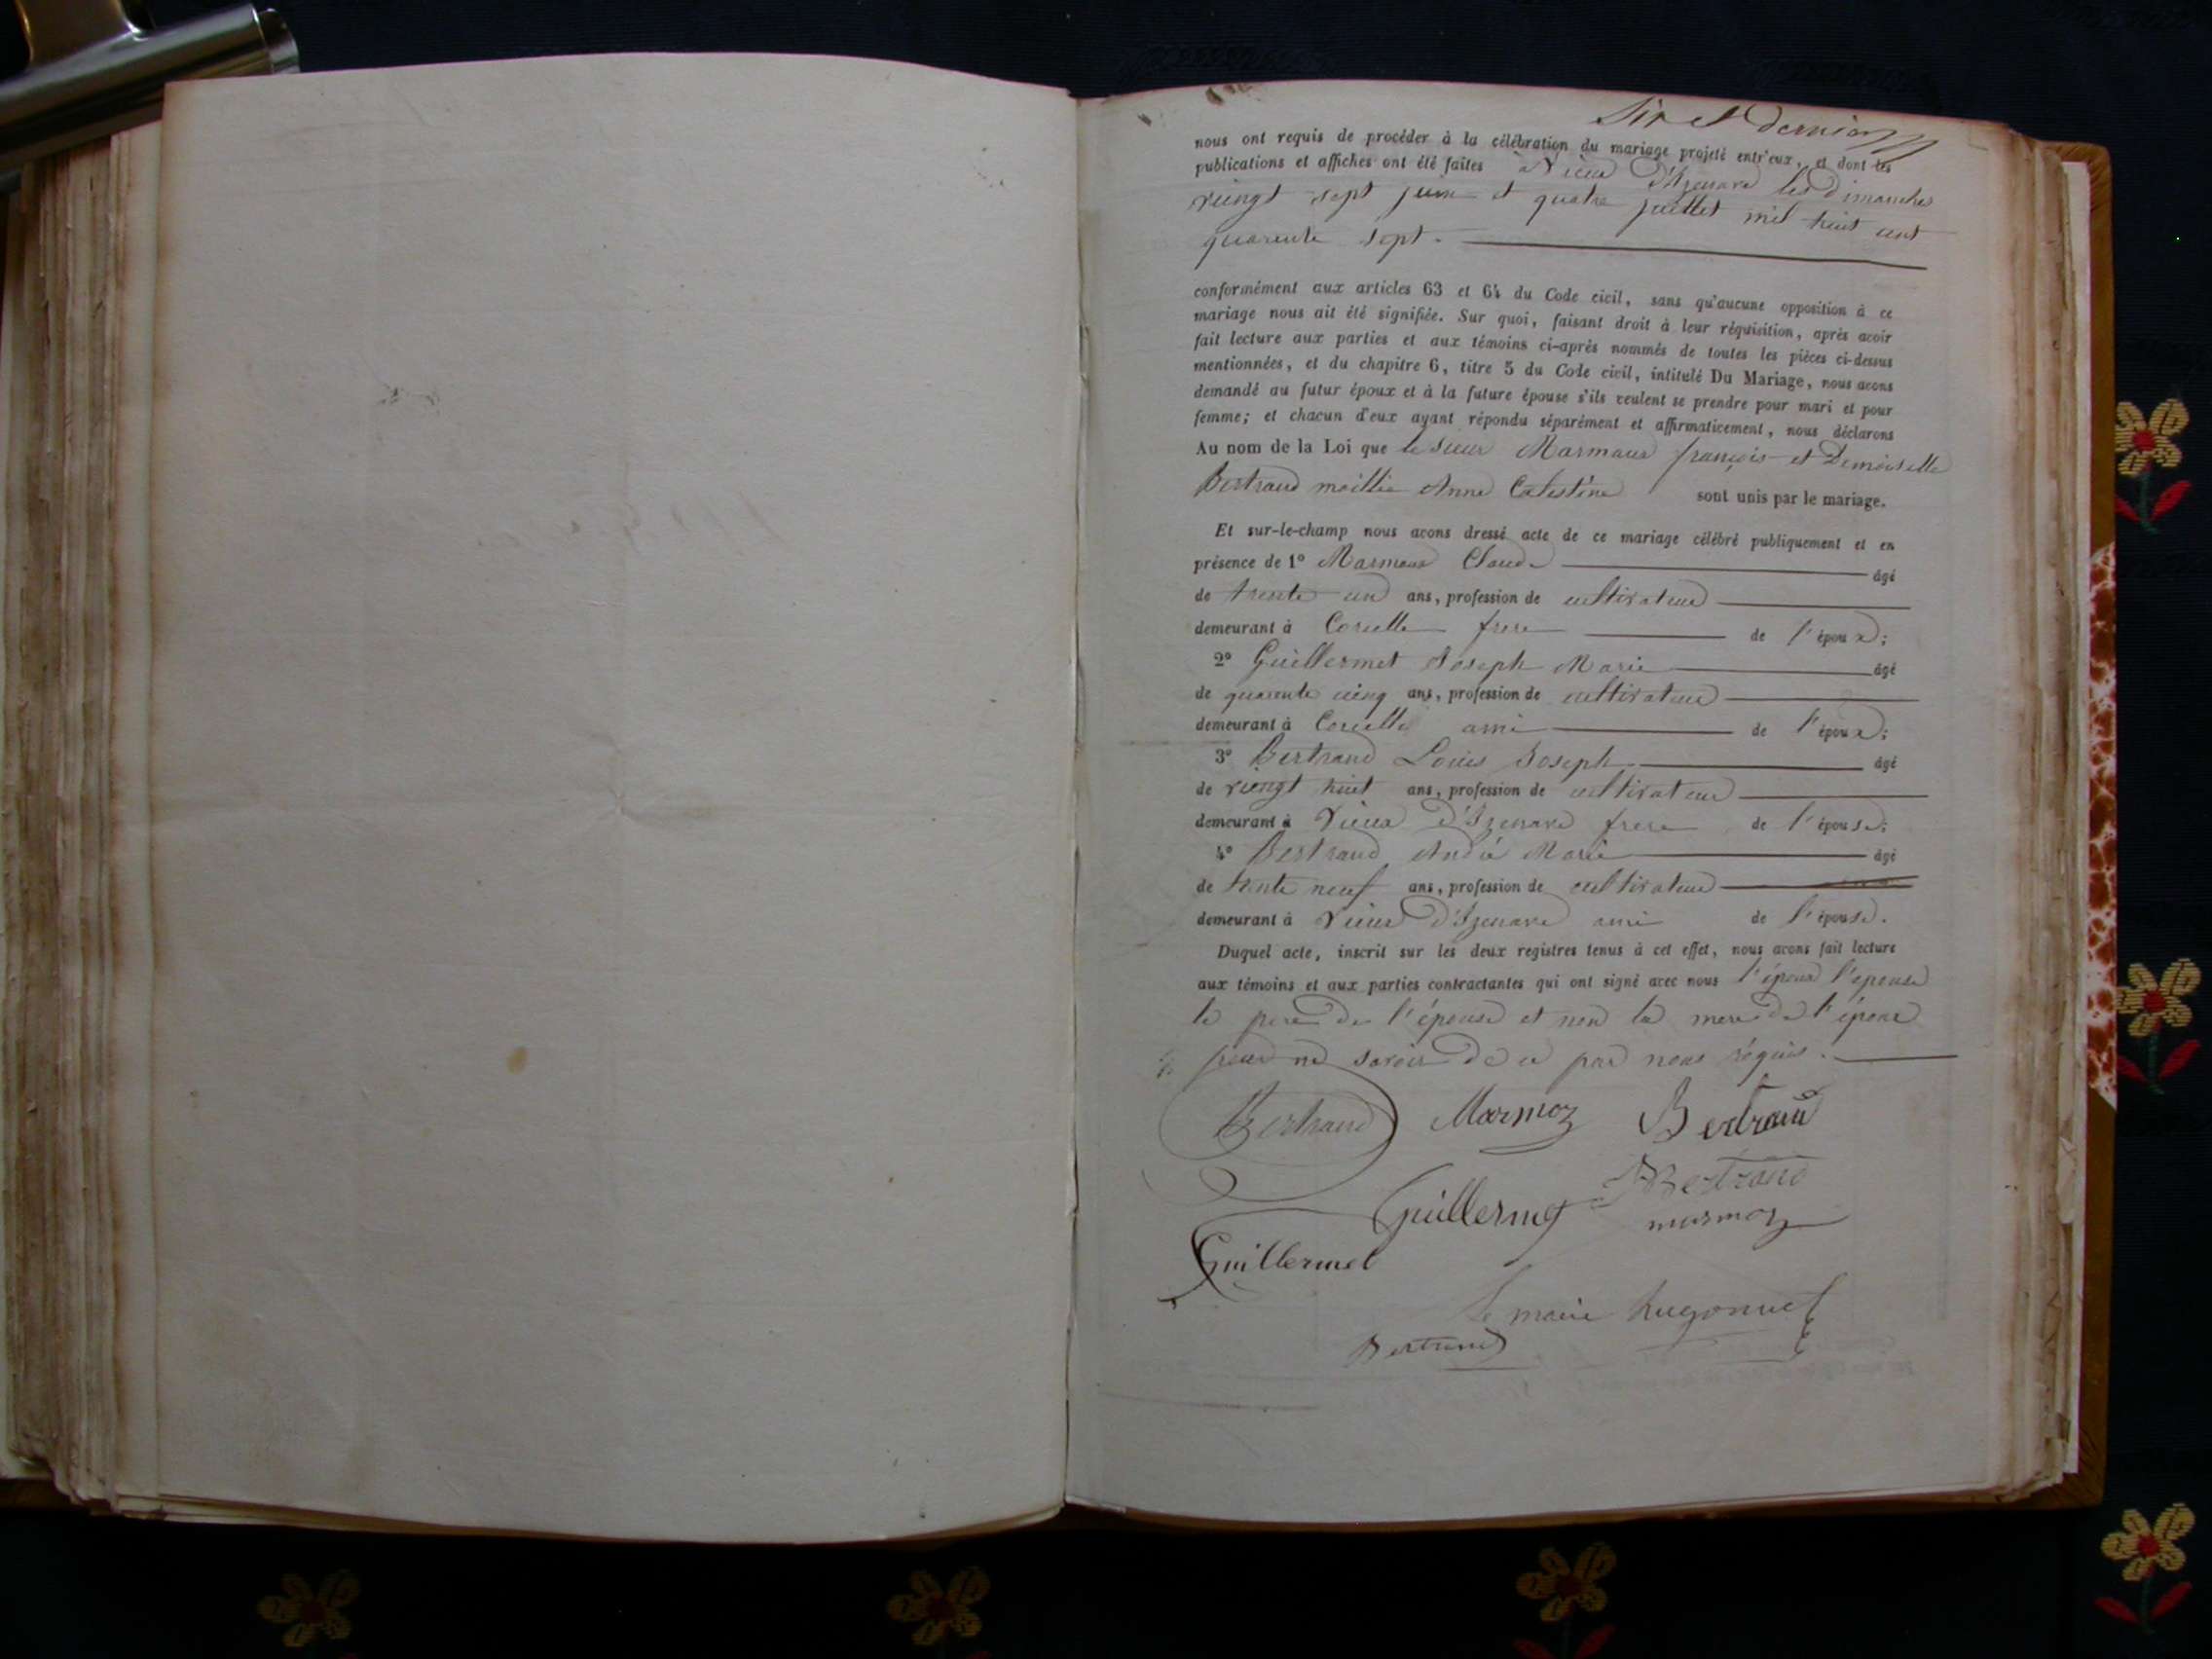 Six et dernier
nous ont requis de procéder à la célébration du mariage projeté entr'eux, et dont les
publications et affiches ont été faites à Vieu d'Izenave les Dimanches
vingt sept juin et quatre juillet mil huit cent
quarente sept.
conformément aux articles 63 et 64 du Code civil, sans qu'aucune opposition à ce
mariage nous ait été signifiée. Sur quoi, faisant droit à leur réquisition, après avoir
fait lecture aux parties et aux témoins ci-après nommés de toutes les pièces ci-dessus
mentionnées, et du chapitre 6, titre 5 du Code civil, intitulé Du Mariage, nous avons
demandé au futur époux et à la future épouse s'ils veulent se prendre pour mari et pour
femme; et chacun d'eux ayant répondu séparément et affirmativement, nous déclarons
Au nom de la Loi que le sieur Marmoux françois et Demoiselle
Bertrand Anne Celestine sont unis par le mariage.
Et sur-le-champ nous avons dressé acte de ce mariage célébré publiquement et en
présence de 1° Marmoux Claude âgé
de trente un ans, profession de cultivateur
demeurant à Corcelle frere de l'époux;
2° Guillermet Joseph Marie âgé
de quarente cinq ans, profession de cultivateur
demeurant à Corcelle ami de l'époux;
3° Bertrand Louis Joseph âgé
de vingt huit ans, profession de cultivateur
demeurant à Vieux d'Izenave frere de l'épouse;
4° Bertrand André Marie âgé
de trente neuf ans, profession de cultivateur
demeurant à Vieux d'Izenave ami de l'épouse.
Duquel acte, inscrit sur les deux registres tenus à cet effet, nous avons fait lecture
aux témoins et aux parties contractantes qui ont signé avec nous l'époux l'epouse
le pere de l'épouse et non la mere de l'époux
pour ne savoir de ce par nous réquis.
Bertrand Marmoz Bertrand
Bertrand
Guillermet marmoz
Guillermet
Le maire hugonnet
Bertrand